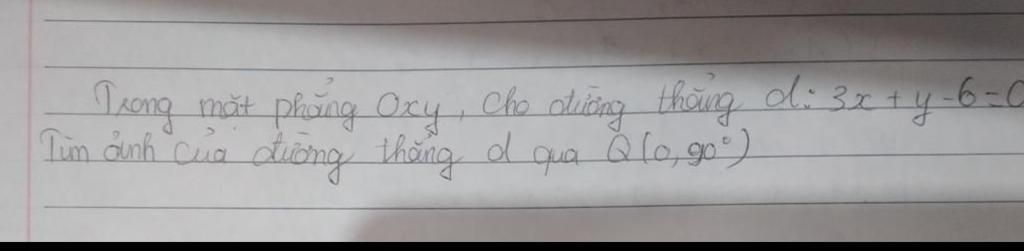 Trong mặt phẳng Oxy, cho đường thẳng d: 3x + y - 6 = 0
Tìm ảnh của đường thẳng d qua Q(0, 90°)